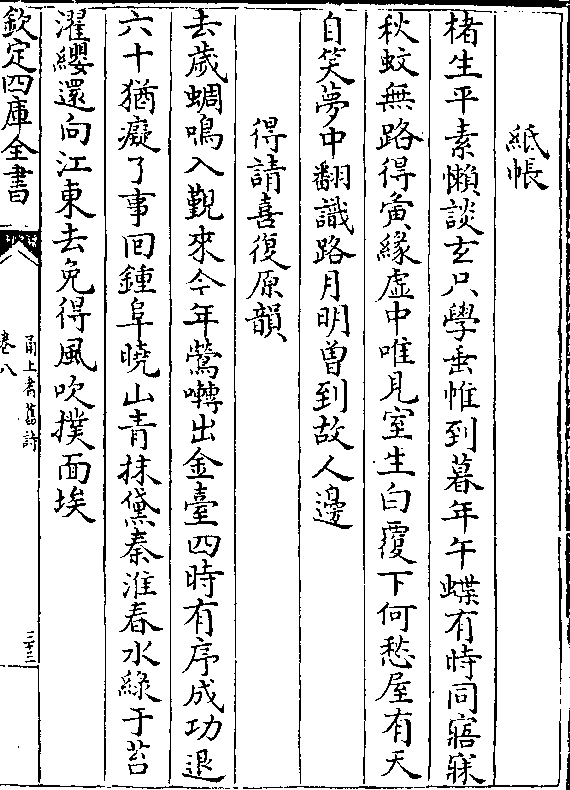 紙帳
楮生平素懶談玄只學垂帷到暮年午蝶有時同寤寐
秋蚊無路得夤緣虛中唯見室生白覆下何愁屋有天
自笑夢中翻識路月明曽到故人邊
得請喜復原韻
去歲蜩鳴入覲來今年鶯囀出金臺四時有序成功退
六十猶癡了事回鍾阜曉山青抹黛秦淮春水綠于苔
濯纓還向江東去免得風吹撲面埃
欽定四庫全書
甬上耆舊詩
卷八
三十三